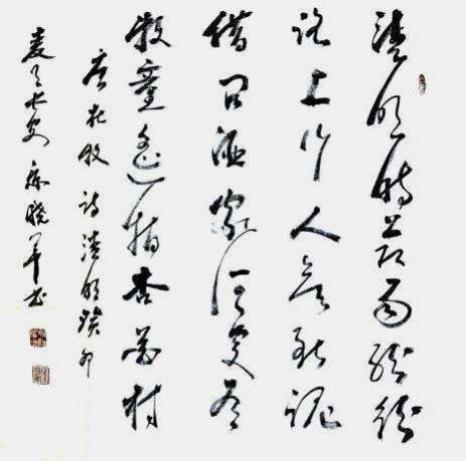 清明时节雨纷纷
路上行人欲断魂
借问酒家何处有
牧童遥指杏花村
唐杜牧诗清明癸卯
夏 长安 晓军书